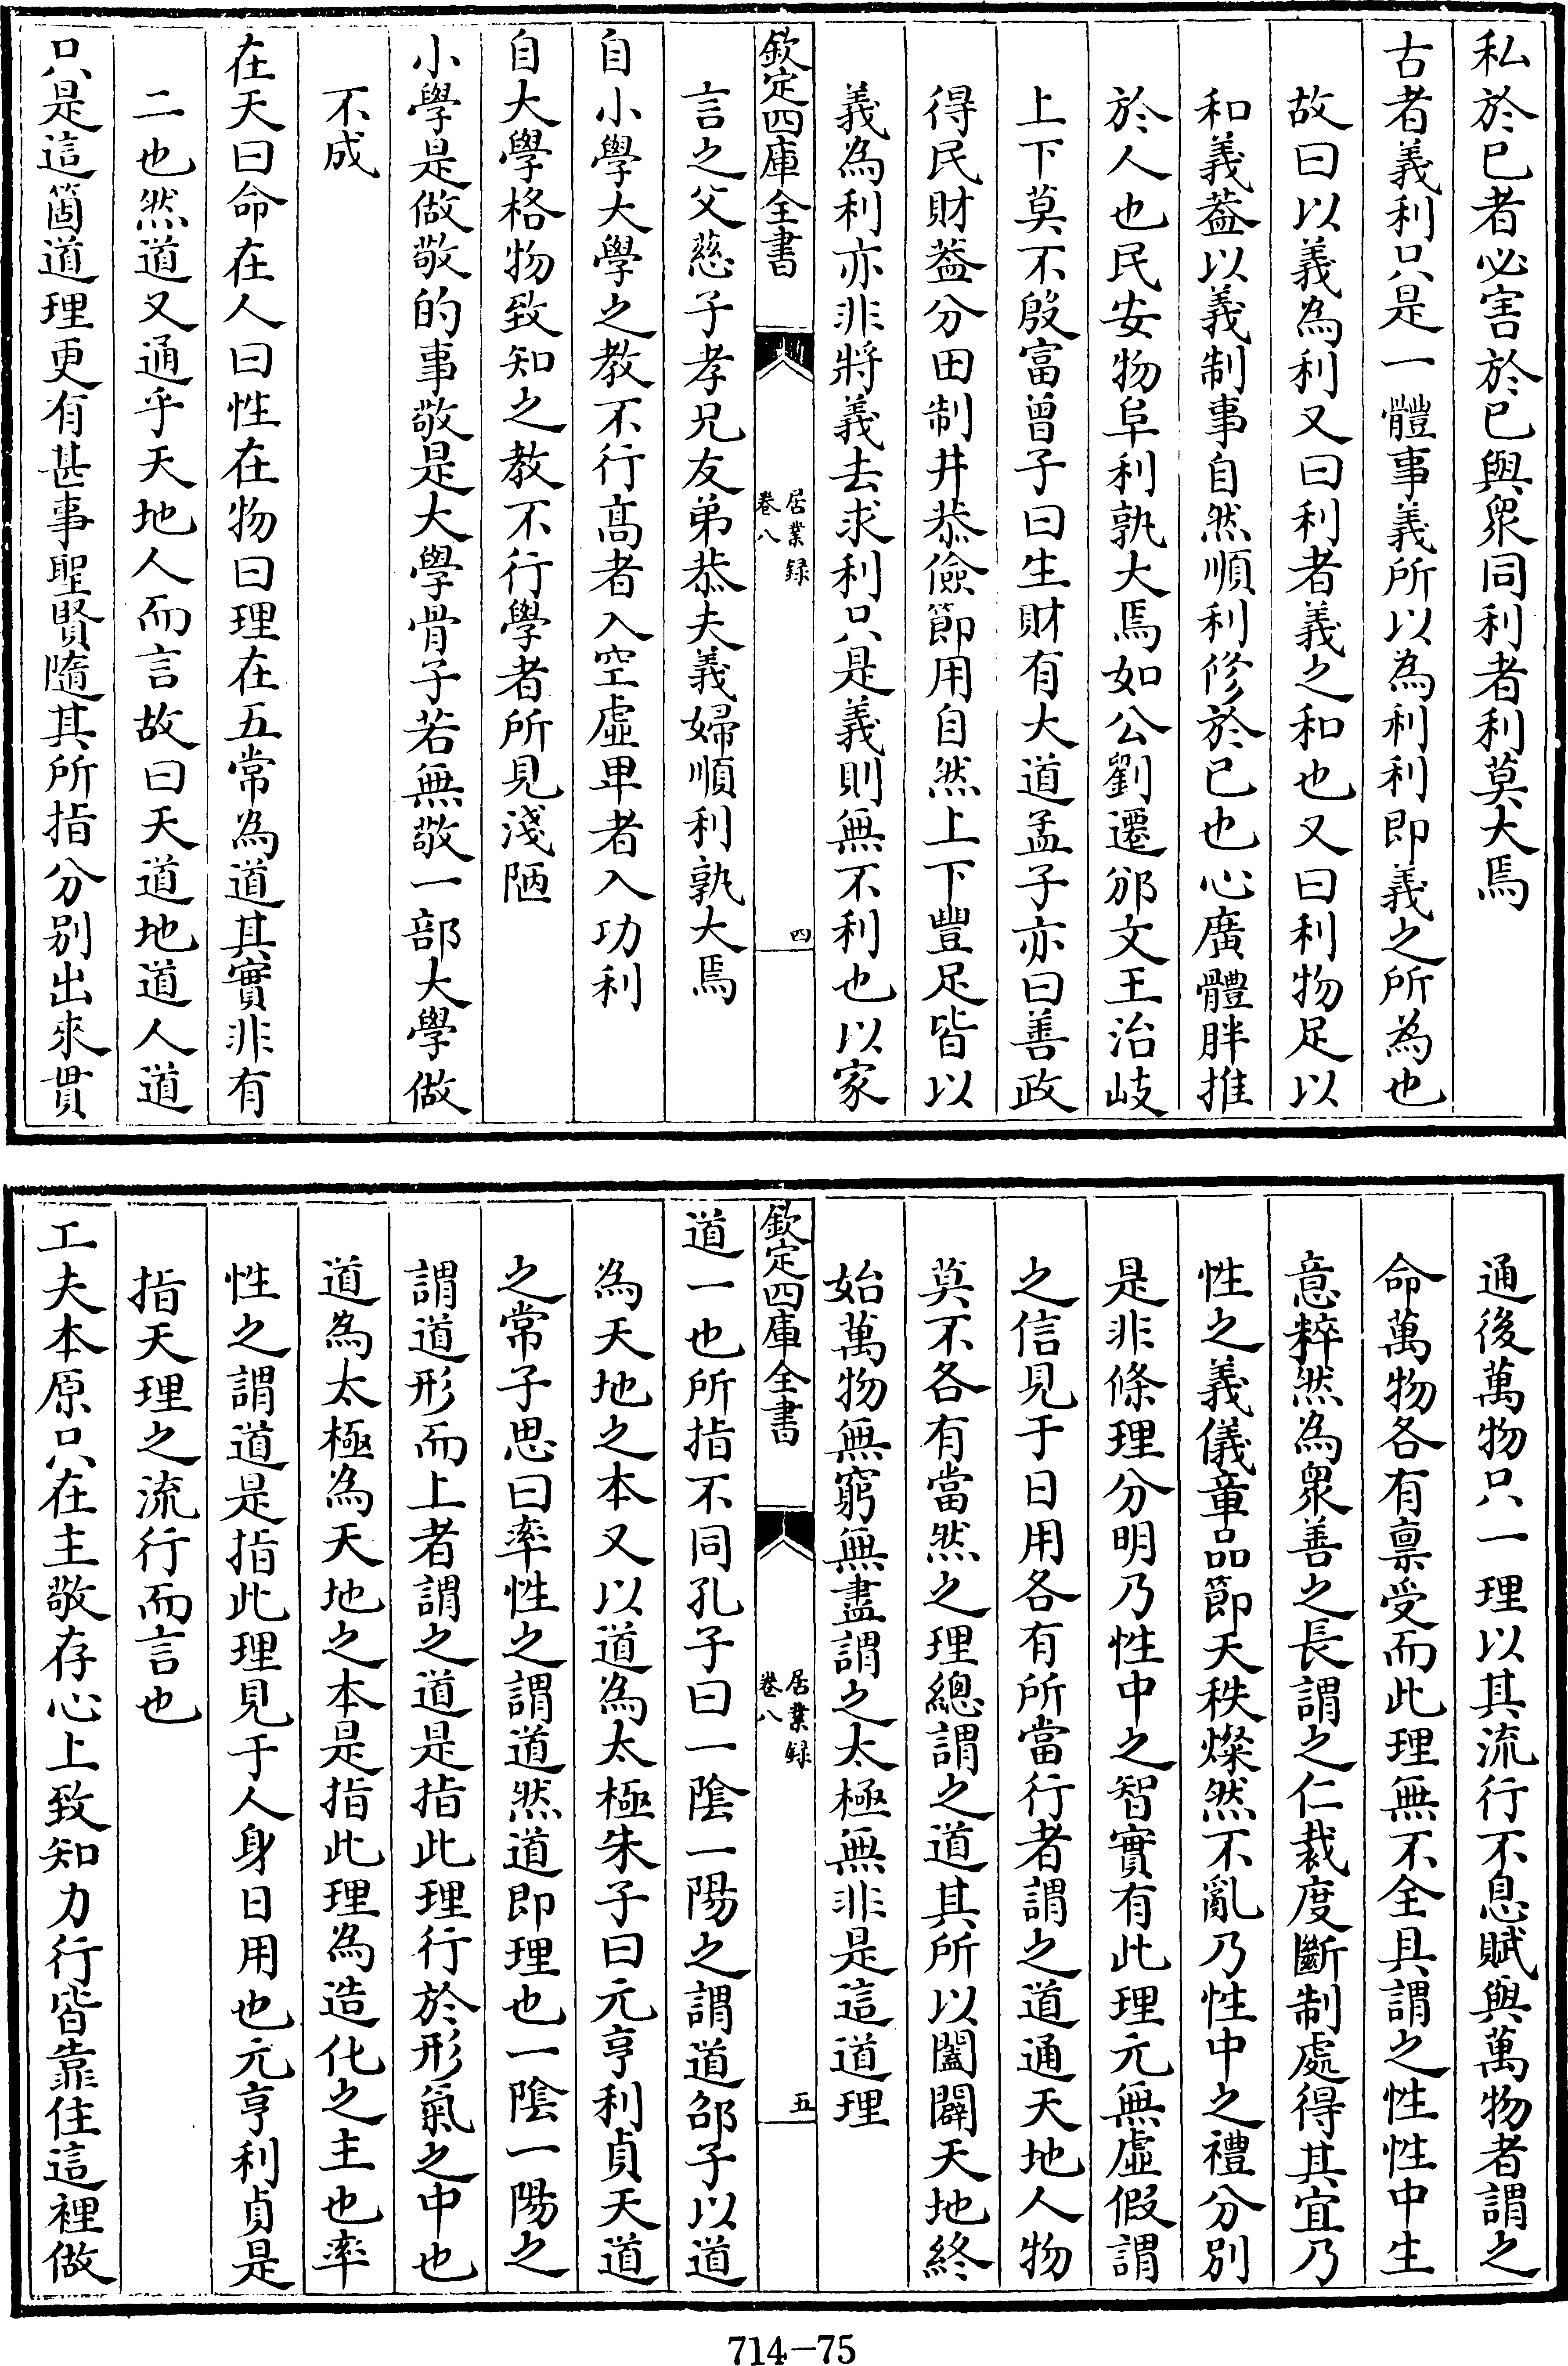 私於已者必害於已與衆同利者利莫大焉
古者義利只是一體事義所以為利利即義之所為也
故曰以義為利又曰利者義之和也又曰利物足以
和義葢以義制事自然順利修於已也心廣體胖推
於人也民安物阜利孰大焉如公劉遷邠文王治岐
上下莫不殷富曾子曰生財有大道孟子亦曰善政
得民財葢分田制井恭儉節用自然上下豐足皆以
義為利亦非將義去求利只是義則無不利也以家
欽定四庫全書
居業録
卷八
四
言之父慈子孝兄友弟恭夫義婦順利孰大焉
自小學大學之教不行髙者入空虛卑者入功利
自大學格物致知之教不行學者所見淺陋
小學是做敬的事敬是大學骨子若無敬一部大學做
不成
在天曰命在人曰性在物曰理在五常為道其實非有
二也然道又通乎天地人而言故曰天道地道人道
只是這箇道理更有甚事聖賢隨其所指分别出來貫
通後萬物只一理以其流行不息賦與萬物者謂之
命萬物各有禀受而此理無不全具謂之性性中生
意粹然為衆善之長謂之仁裁度斷制處得其宜乃
性之義儀章品節天秩燦然不亂乃性中之禮分别
是非條理分明乃性中之智實有此理元無虛假謂
之信見于日用各有所當行者謂之道通天地人物
莫不各有當然之理總謂之道其所以闔闢天地終
始萬物無窮無盡謂之太極無非是這道理
欽定四庫全書
居業録
卷八
五
道一也所指不同孔子曰一隂一陽之謂道邵子以道
為天地之本又以道為太極朱子曰元亨利貞天道
之常子思曰率性之謂道然道即理也一隂一陽之
謂道形而上者謂之道是指此理行於形氣之中也
道為太極為天地之本是指此理為造化之主也率
性之謂道是指此理見于人身日用也元亨利貞是
指天理之流行而言也
工夫本原只在主敬存心上致知力行皆靠住這裡做
714-75